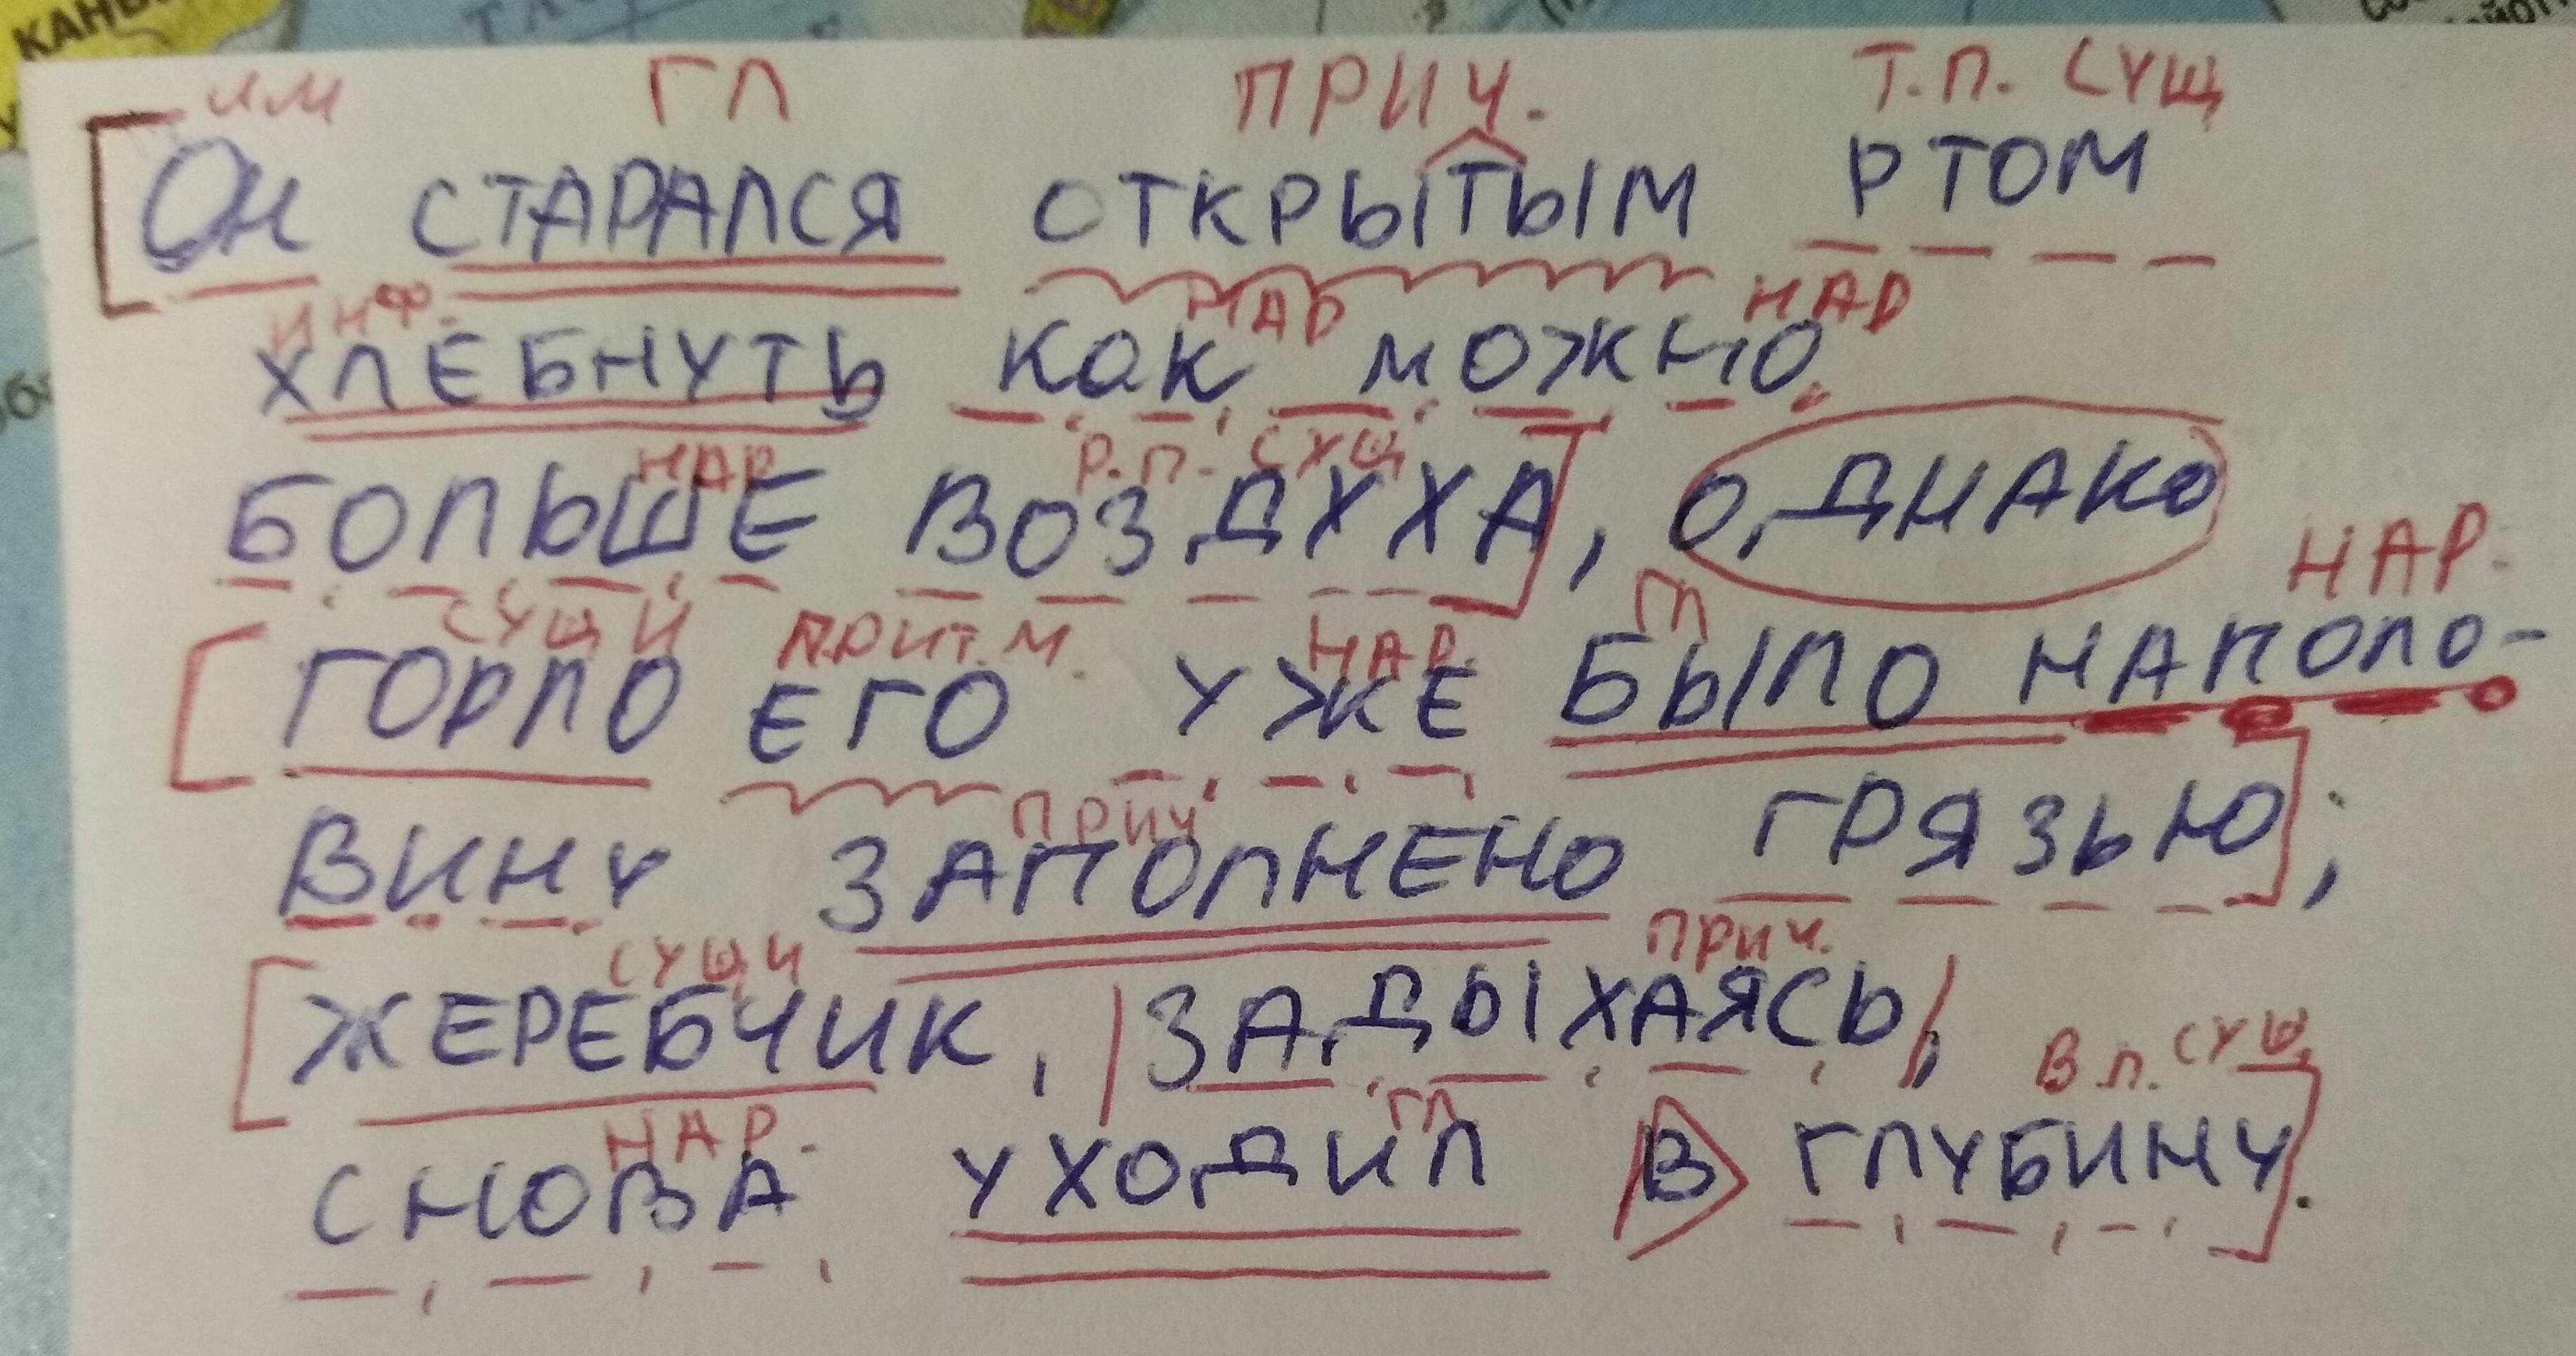 КАНЫ
им ГЛ ПРИЧ. Т.П. СУЩ
Он СТАРАЛСЯ ОТКРЫТЫМ РТОМ
ИНФ. НАР НАР
ХЛЕБНУТЬ КАК МОЖНО
НАР Р.П. СУЩ
БОЛЬШЕ ВОЗДУХА, ОДНАКО
СУЩ И ПРИТ.М. НАР. ГЛ НАР.
ГОРЛО ЕГО УЖЕ БЫЛО НАПОЛО-
ПРИЧ
ВИНУ ЗАПОЛНЕНО ГРЯЗЬЮ;
СУЩ И ПРИЧ.
ЖЕРЕБЧИК, ЗАДЫХАЯСЬ,
НАР. ГЛ В.П. СУЩ
СНОВА УХОДИЛ В ГЛУБИНУ.